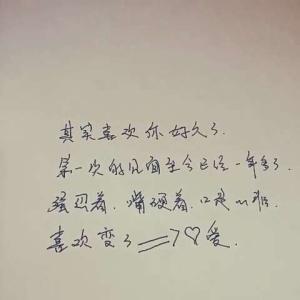 其实喜欢你好久了.
第一次的见面至今已经一年多了.
强忍着.嘴硬着.口是心非.
喜欢变了=>♡爱.